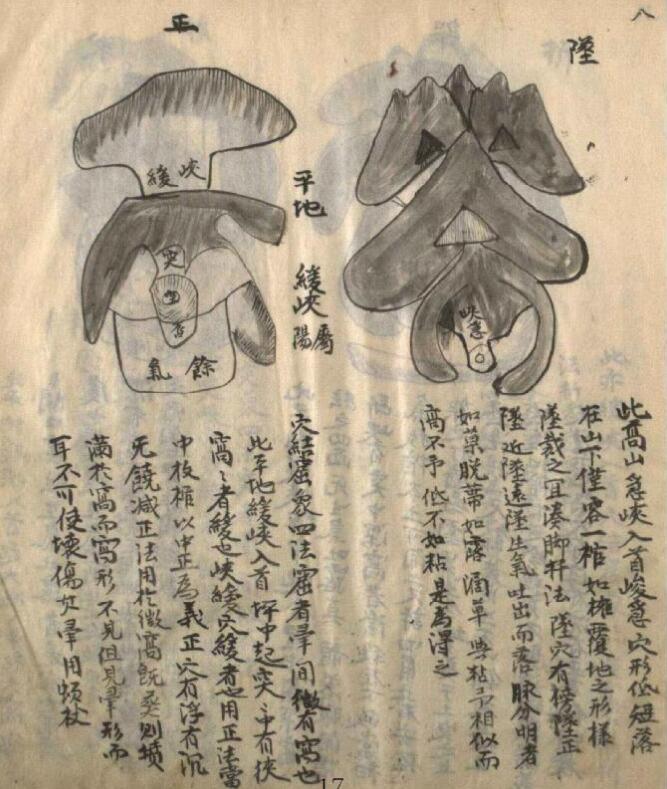 八
墜
峽急
此髙山急峽入首峻急穴形低短落
在山下僅容一棺如擁覆地之形樣
墜裁之宜湊脚杆法墜穴有傍墜正
墜近墜遠墜生氣吐出而落脉分明者
如菓脫蒂如露滴草與粘亦相似而
高不予低不如粘是為得之
平地 緩峽屬陽
正
緩峽
突
餘氣
穴結窟象四法窟者暈間微有窩也
此平地緩峽入首坪中起突突中有
窩窩者緩也峽緩穴緩者也用正法當
中放棺以中正為義正穴有浮有沉
无饒减正法用於微窩
滿於窩而窩形不見但見暈形而
耳不可使壞傷其暈用頓杖
17